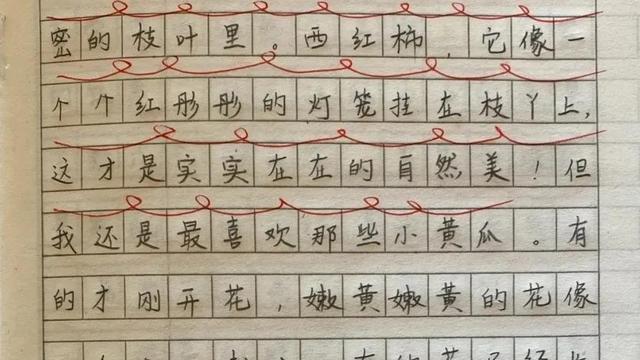 密的枝叶里。西红柿,它像一
个个红彤彤的灯笼挂在枝丫上,
这才是实实在在的自然美!但
我还是最喜欢那些小黄瓜。有
的才刚开花,嫩黄嫩黄的花像